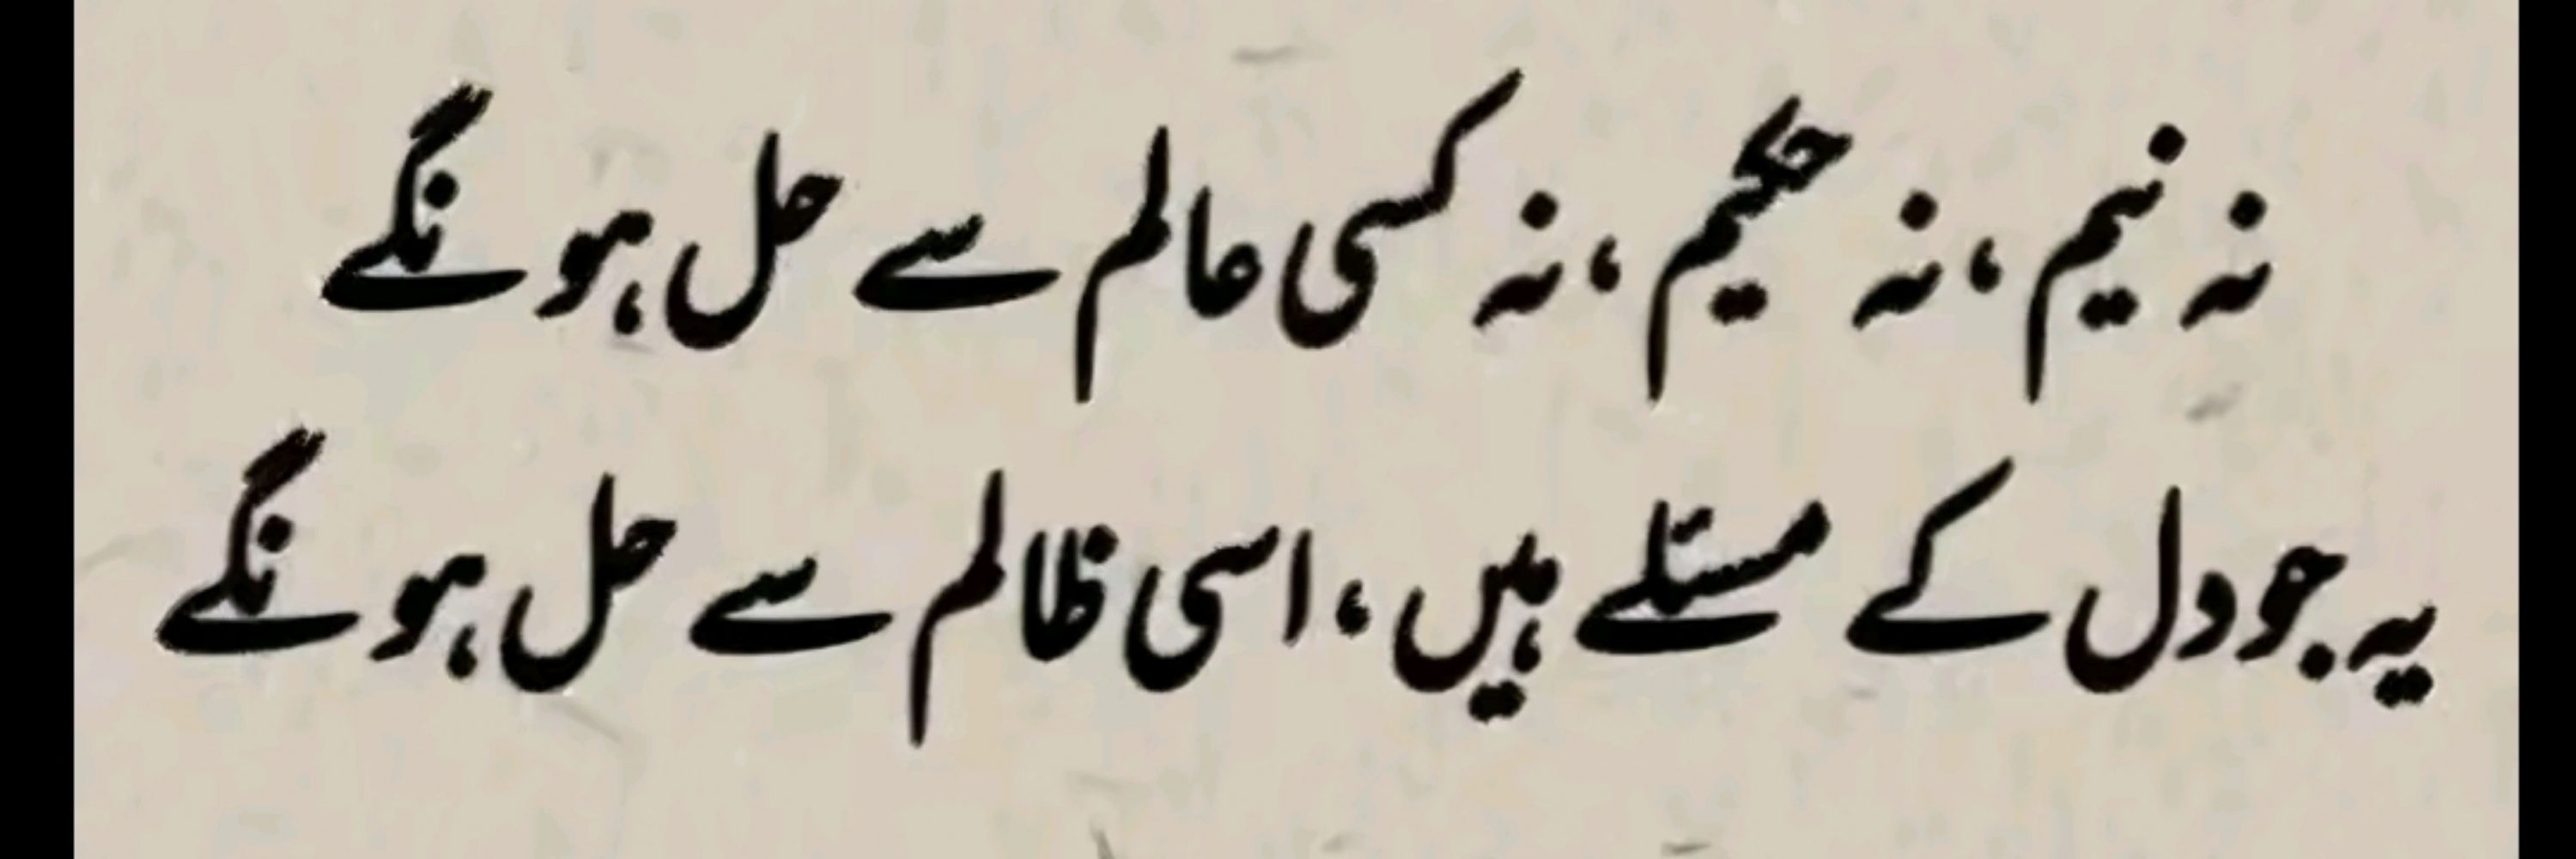 نہ نیم ، نہ حکیم ، نہ کسی عالم سے حل ہونگے
یہ جو دل کے مسئلے ہیں ، اسی ظالم سے حل ہونگے